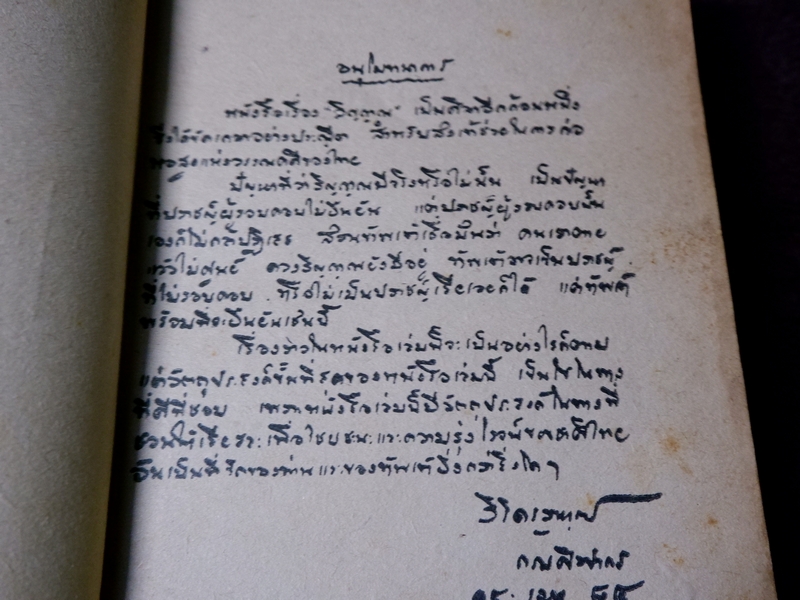 อนุโมทนาการ
หนังสือเรื่อง "วิญญาณ" เป็นศิลาอีกก้อนหนึ่ง
ซึ่งได้ขัดเกลาอย่างประณีต สำหรับส่งเข้าช่วยในการก่อ
แห่งวรรณคดีของไทย
ปัญหาที่ว่าวิญญาณมีจริงหรือไม่นั้น เป็นปัญหา
ที่ปราชญ์ผู้รอบคอบไม่ยืนยัน แต่ปราชญ์ผู้รอบคอบนั้น
เองก็ไม่กล้าปฏิเสธ ส่วนข้าพเจ้าเชื่อมั่นว่า คนเราตาย
แล้วไม่ศูนย์ ดวงวิญญาณยังมีอยู่ ข้าพเจ้าอาจเป็นปราชญ์
ที่ไม่รอบคอบ หรือไม่เป็นปราชญ์เสียเลยก็ได้ แต่ข้าพเจ้า
พร้อมที่จะยืนยันเช่นนี้
เรื่องราวในหนังสือเล่มนี้จะเป็นอย่างไรก็ตาม
แต่วัตถุประสงค์ขั้นที่สุดของหนังสือเล่มนี้ เป็นไปในทาง
ที่ดีที่ชอบ เพราะหนังสือเล่มนี้มีวัตถุประสงค์ในทางที่
ชวนให้เสียสละเพื่อประโยชน์และความรุ่งโรจน์ของชาติไทย
อันเป็นที่รักของท่านและของข้าพเจ้ายิ่งกว่าสิ่งใด ๆ